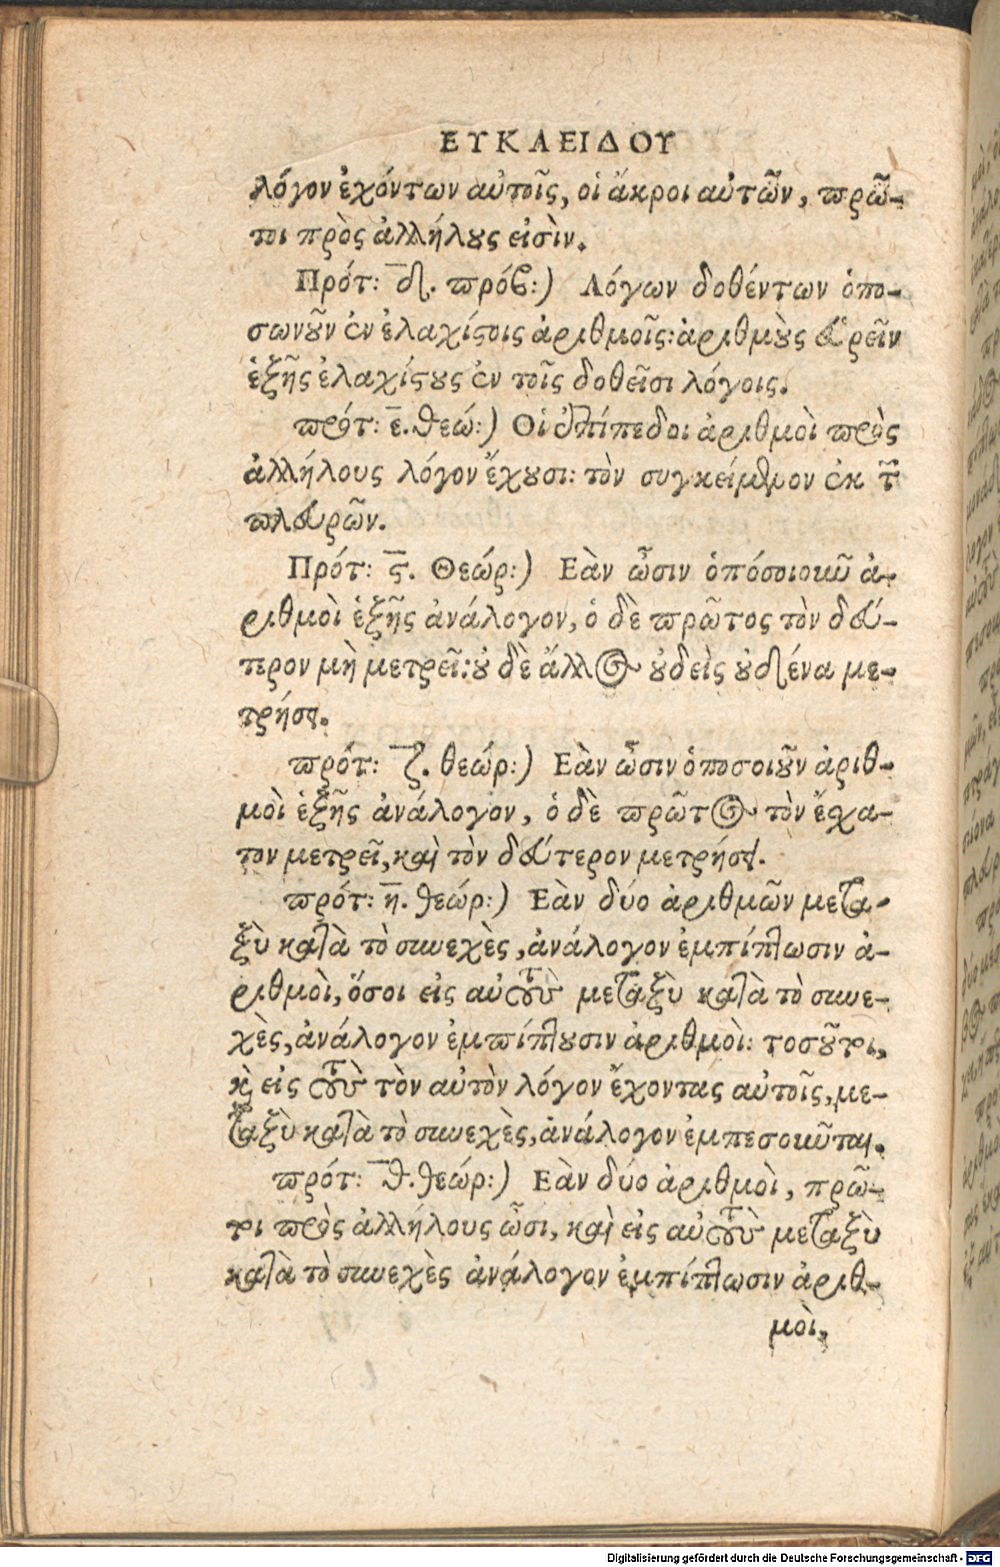 ΕΥΚΛΕΙΔΟΥ
λόγον ἐχόντων αὐτοῖς, οἱ ἄκροι αὐτῶν, πρῶ-
τοι πρὸς ἀλλήλους εἰσὶν.
Πρότ: δ̅. πρόβ:) Λόγων δοθέντων ὁπο-
σωνοῦν ἐν ἐλαχίστοις ἀριθμοῖς: ἀριθμοὺς εὑρεῖν
ἑξῆς ἐλαχίστους ἐν τοῖς δοθεῖσι λόγοις.
πρότ: ε̅. θεώ:) Οἱ ἐπίπεδοι ἀριθμοὶ πρὸς
ἀλλήλους λόγον ἔχουσι: τὸν συγκείμενον ἐκ τῶν
πλευρῶν.
Πρότ: ϛ̅. Θεώρ:) Εὰν ὦσιν ὁπόσοιοιωῦ ἀ-
ριθμοὶ ἑξῆς ἀνάλογον, ὁ δὲ πρῶτος τὸν δεύ-
τερον μὴ μετρεῖ: οὐ δὲ ἄλλος οὐδεὶς οὐδένα με-
τρήσει.
πρότ: ζ̅. θεώρ:) Εὰν ὦσιν ὁποσοιοῦν ἀριθ-
μοὶ ἑξῆς ἀνάλογον, ὁ δὲ πρῶτος τὸν ἔσχα-
τον μετρεῖ, καὶ τὸν δεύτερον μετρήσει.
πρότ: η̅. θεώρ:) Εὰν δύο ἀριθμῶν μετα-
ξὺ κατὰ τὸ συνεχὲς, ἀνάλογον ἐμπίπτωσιν ἀ-
ριθμοὶ, ὅσοι εἰς αὐτοὺς μεταξὺ κατὰ τὸ συνε-
χὲς, ἀνάλογον ἐμπίπτουσιν ἀριθμοὶ: τοσοῦτοι,
καὶ εἰς τοὺς τὸν αὐτὸν λόγον ἔχοντας αὐτοῖς, με-
ταξὺ κατὰ τὸ συνεχὲς, ἀνάλογον ἐμπεσοιωῦται.
πρότ: θ̅. θεώρ:) Εὰν δύο ἀριθμοὶ, πρῶ-
τοι πρὸς ἀλλήλους ὦσι, καὶ εἰς αὐτοὺς μεταξὺ
κατὰ τὸ συνεχὲς ἀνάλογον ἐμπίπτωσιν ἀριθ-
μοὶ,
Digitalisierung gefördert durch die Deutsche Forschungsgemeinschaft - DFG